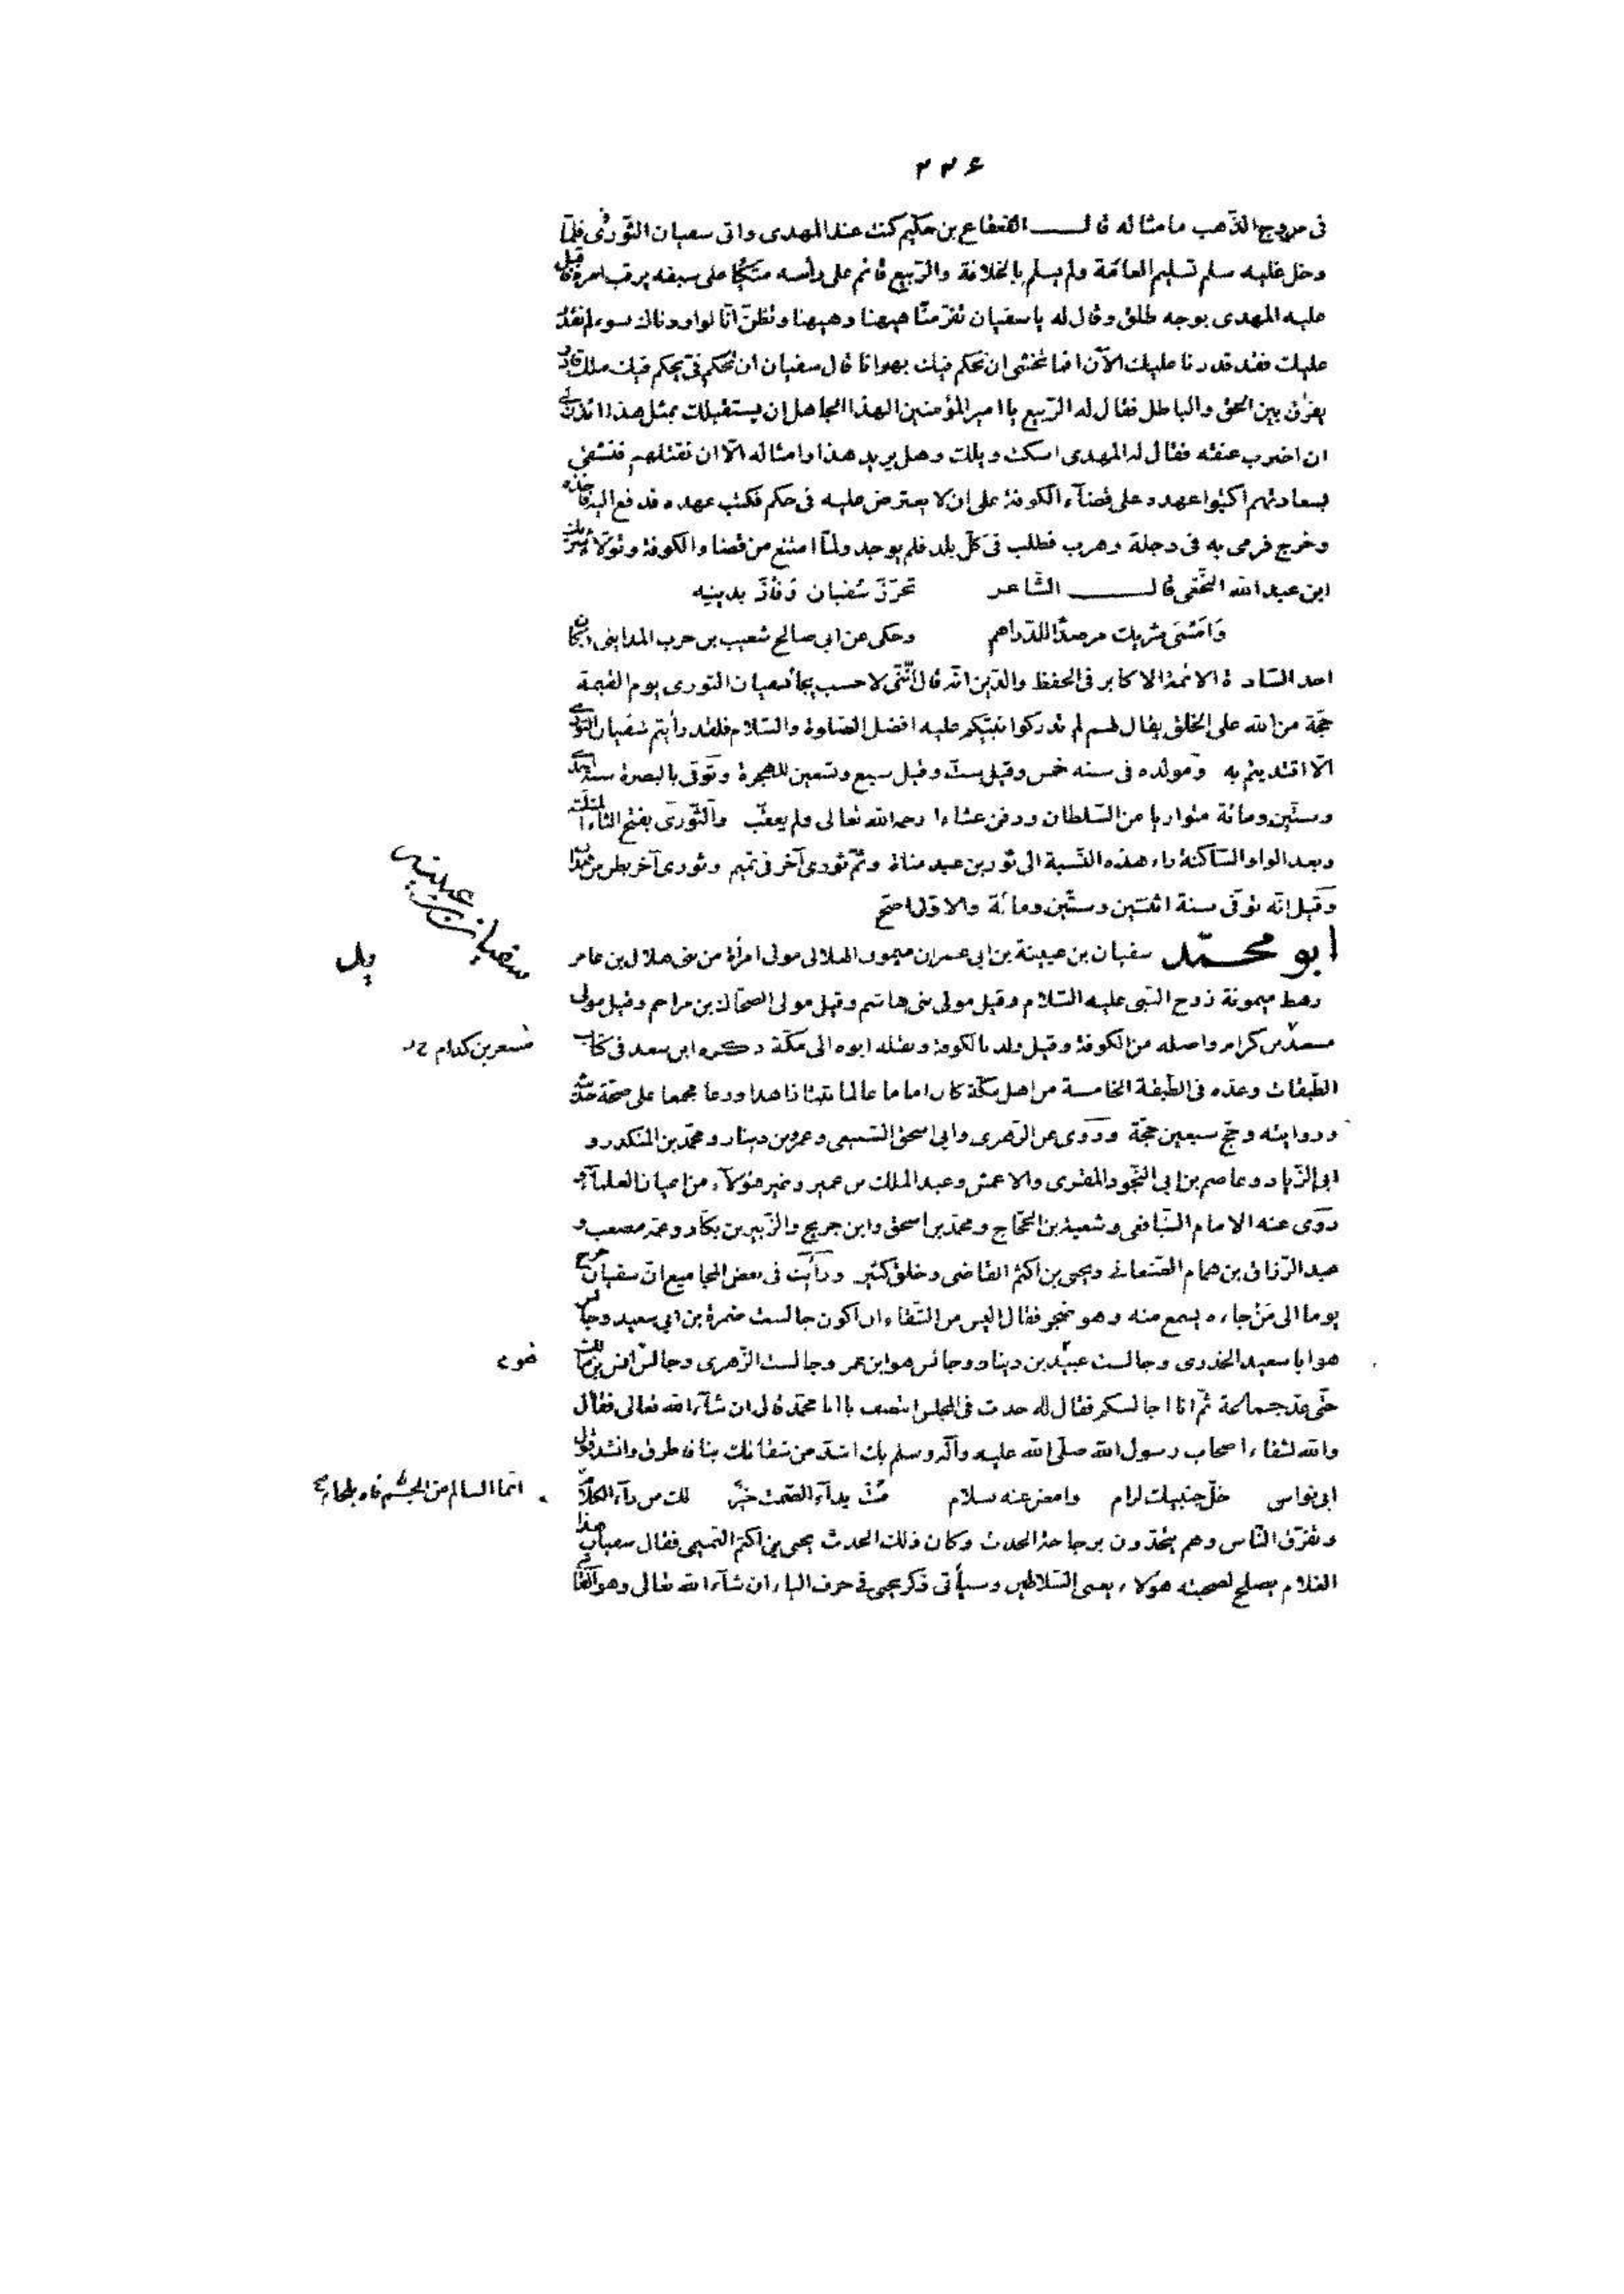 ۲۲۶
فى مروج الذّهب ما مثاله قال القعقاع بن حكيم كنت عند المهدى واتى سفيان الثّورىّ فلمّا
دخل عليه سلم تسليم العامّة ولم يسلم بالخلافة والرّبيع قائم على رأسه متكئا على سيفه يرقب امره فاقبل
عليه المهدى بوجه طلق وقال له يا سفيان تفرّ منّا هيهنا وهيهنا وتظنّ انّا لو اردناك بسوء لم نقدر
عليك فقد قدرنا عليك الآن افما تخشى ان نحكم فيك بهوانا قال سفيان ان تحكم فىّ يحكم فيك ملك قادر
يفرّق بين الحق والباطل فقال له الرّبيع يا امير المؤمنين الهذا الجاهل ان يستقبلك بمثل هذا ائذن لى
ان اضرب عنقه فقال له المهدى اسكت ويلك وهل يريد هذا وامثاله الّا ان نقتلهم فنشقى
بسعادتهم اكتبوا عهده على قضآء الكوفة على ان لا يعترض عليه فى حكم فكتب عهده فدفع اليه فاخذه
وخرج فرمى به فى دجلة وهرب فطلب فى كلّ بلد فلم يوجد ولمّا امتنع من قضاء الكوفة وتولّاه شريك
ابن عبد الله النّخعى قال الشّاعر تحرّز سُفيان وَفازَ بدينه
وَامْسَى شريك مرصدًا للدّراهم وحكى عن ابى صالح شعيب بن حرب المداينى وكان
احد السّادة الائمة الاكابر فى الحفظ والدّين انّه قال انّنى لاحسب يجآء سفيان الثورى يوم القيمة
حجّة من الله على الخلق يقال لهم لم تدركوا نبيّكم عليه افضل الصّلوة والسّلام فلقد رأيتم سُفيان الثّورى
الّا اقتديتم به ومولده فى سنه خمس وقيل ست وقيل سبع وتسعين للهجرة وتوّفى بالبصرة سنة احدى
وستّين ومائة متواريا من السّلطان ودفن عشاء رحمه الله تعالى ولم يعقّب والثّورى بفتح الثاء المثلّثة
وبعد الواو السّاكنة راء هذه النّسبة الى ثور بن عبد مناة وثمّ ثورى آخر فى تميم وثورى آخر بطن من همدان
وقيل انّه توفّى سنة اثنتين وستّين ومائة والاوّل اصحّ
سفيان بن عيينة
ابو محمّد سفيان بن عيينة بن ابى عمران ميمون الهلالى مولى امرأة من بنى هلال بن عامر
رهط ميمونة زوج النّبى عليه السّلام وقيل مولى بنى هاشم وقيل مولى الضحّاك بن مزاحم وقيل مولى
مسعر بن كرام واصله من الكوفة وقيل ولد بالكوفة ونقله ابوه الى مكّة ذكره ابن سعد فى كتاب
مسعر بن كدام
الطّبقات وعدّه فى الطّبقة الخامسة من اهل مكّة كان اماما عالما ثبتا زاهدا ورعا مجمعا على صحّة حديثه
وروايته وحجّ سبعين حجّة وروى عن الزّهرى وابى اسحق السّبيعى وعمرو بن دينار ومحمّد بن المنكدر و
ابى الزّناد وعاصم بن ابى النّجود المقرى والاعمش وعبد الملك بن عمير وغير هؤلآء من اعيان العلمآء و
روى عنه الامام الشّافعى وشعبة بن الحجّاج ومحمّد بن اسحق وابن جريج والزّبير بن بكّار وعمّه مصعب و
عبد الرّزاق بن همام الصّنعانى ويحيى بن اكثم القاضى وخلق كثير ورأيت فى بعض المجاميع انّ سفيان خرج
يوما الى مَنْ جاءه يسمع منه وهو ضجر فقال اليس من الشّقاء ان اكون جالست ضمرة بن ابى سعيد وجالس
هو ابا سعيد الخدرى وجالست عبيد بن دينار وجالس هو ابن عمر وجالست الزّهرى وجالس انس بن مالك
حتّى عدّ جماعة ثمّ انا اجالسكم فقال له حدث فى المجلس انتصف يا ابا محمّد قال ان شآء الله تعالى فقال
والله لشقاء اصحاب رسول الله صلّى الله عليه وآله وسلم بك اشدّ من شقائك بنا فاطرق وانشد قول
ابى نواس خلّ جنبيك لرام وامض عنه بسلام مُتْ بدآء الصّمت خيْر لك من دآء الكلام
انّما السالم من الجم فاه بلجام
وتفرّق النّاس وهم يتحدّثون برجاحة الحدث وكان ذلك الحدث يحيى بن اكثم التميمى فقال سفيان هذا
الغلام يصلح لصحبة هؤلاء يعنى السّلاطين وسيأتى ذكر يحيى فى حرف الياء ان شآء الله تعالى وهو